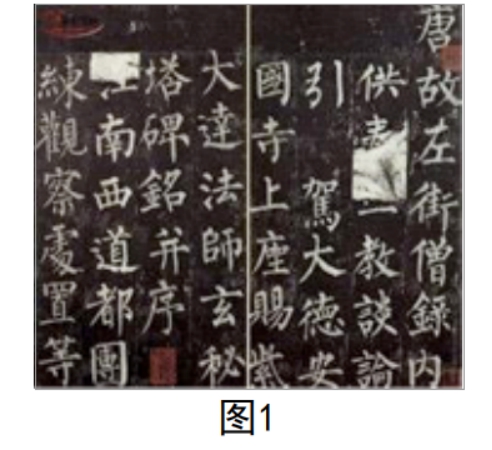 唐故左街僧錄內
供奉教談論
引駕大德安
國寺上座賜紫
大達法師玄秘
塔碑銘并序
江南西道都團
練觀察處置等
图1